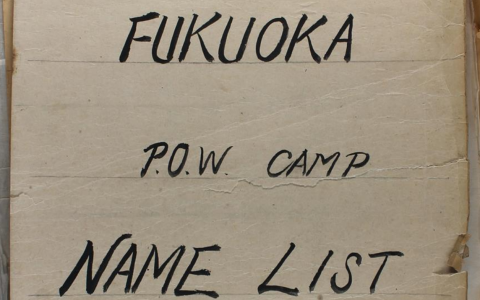 FUKUOKA
P.O.W. CAMP
NAME LIST